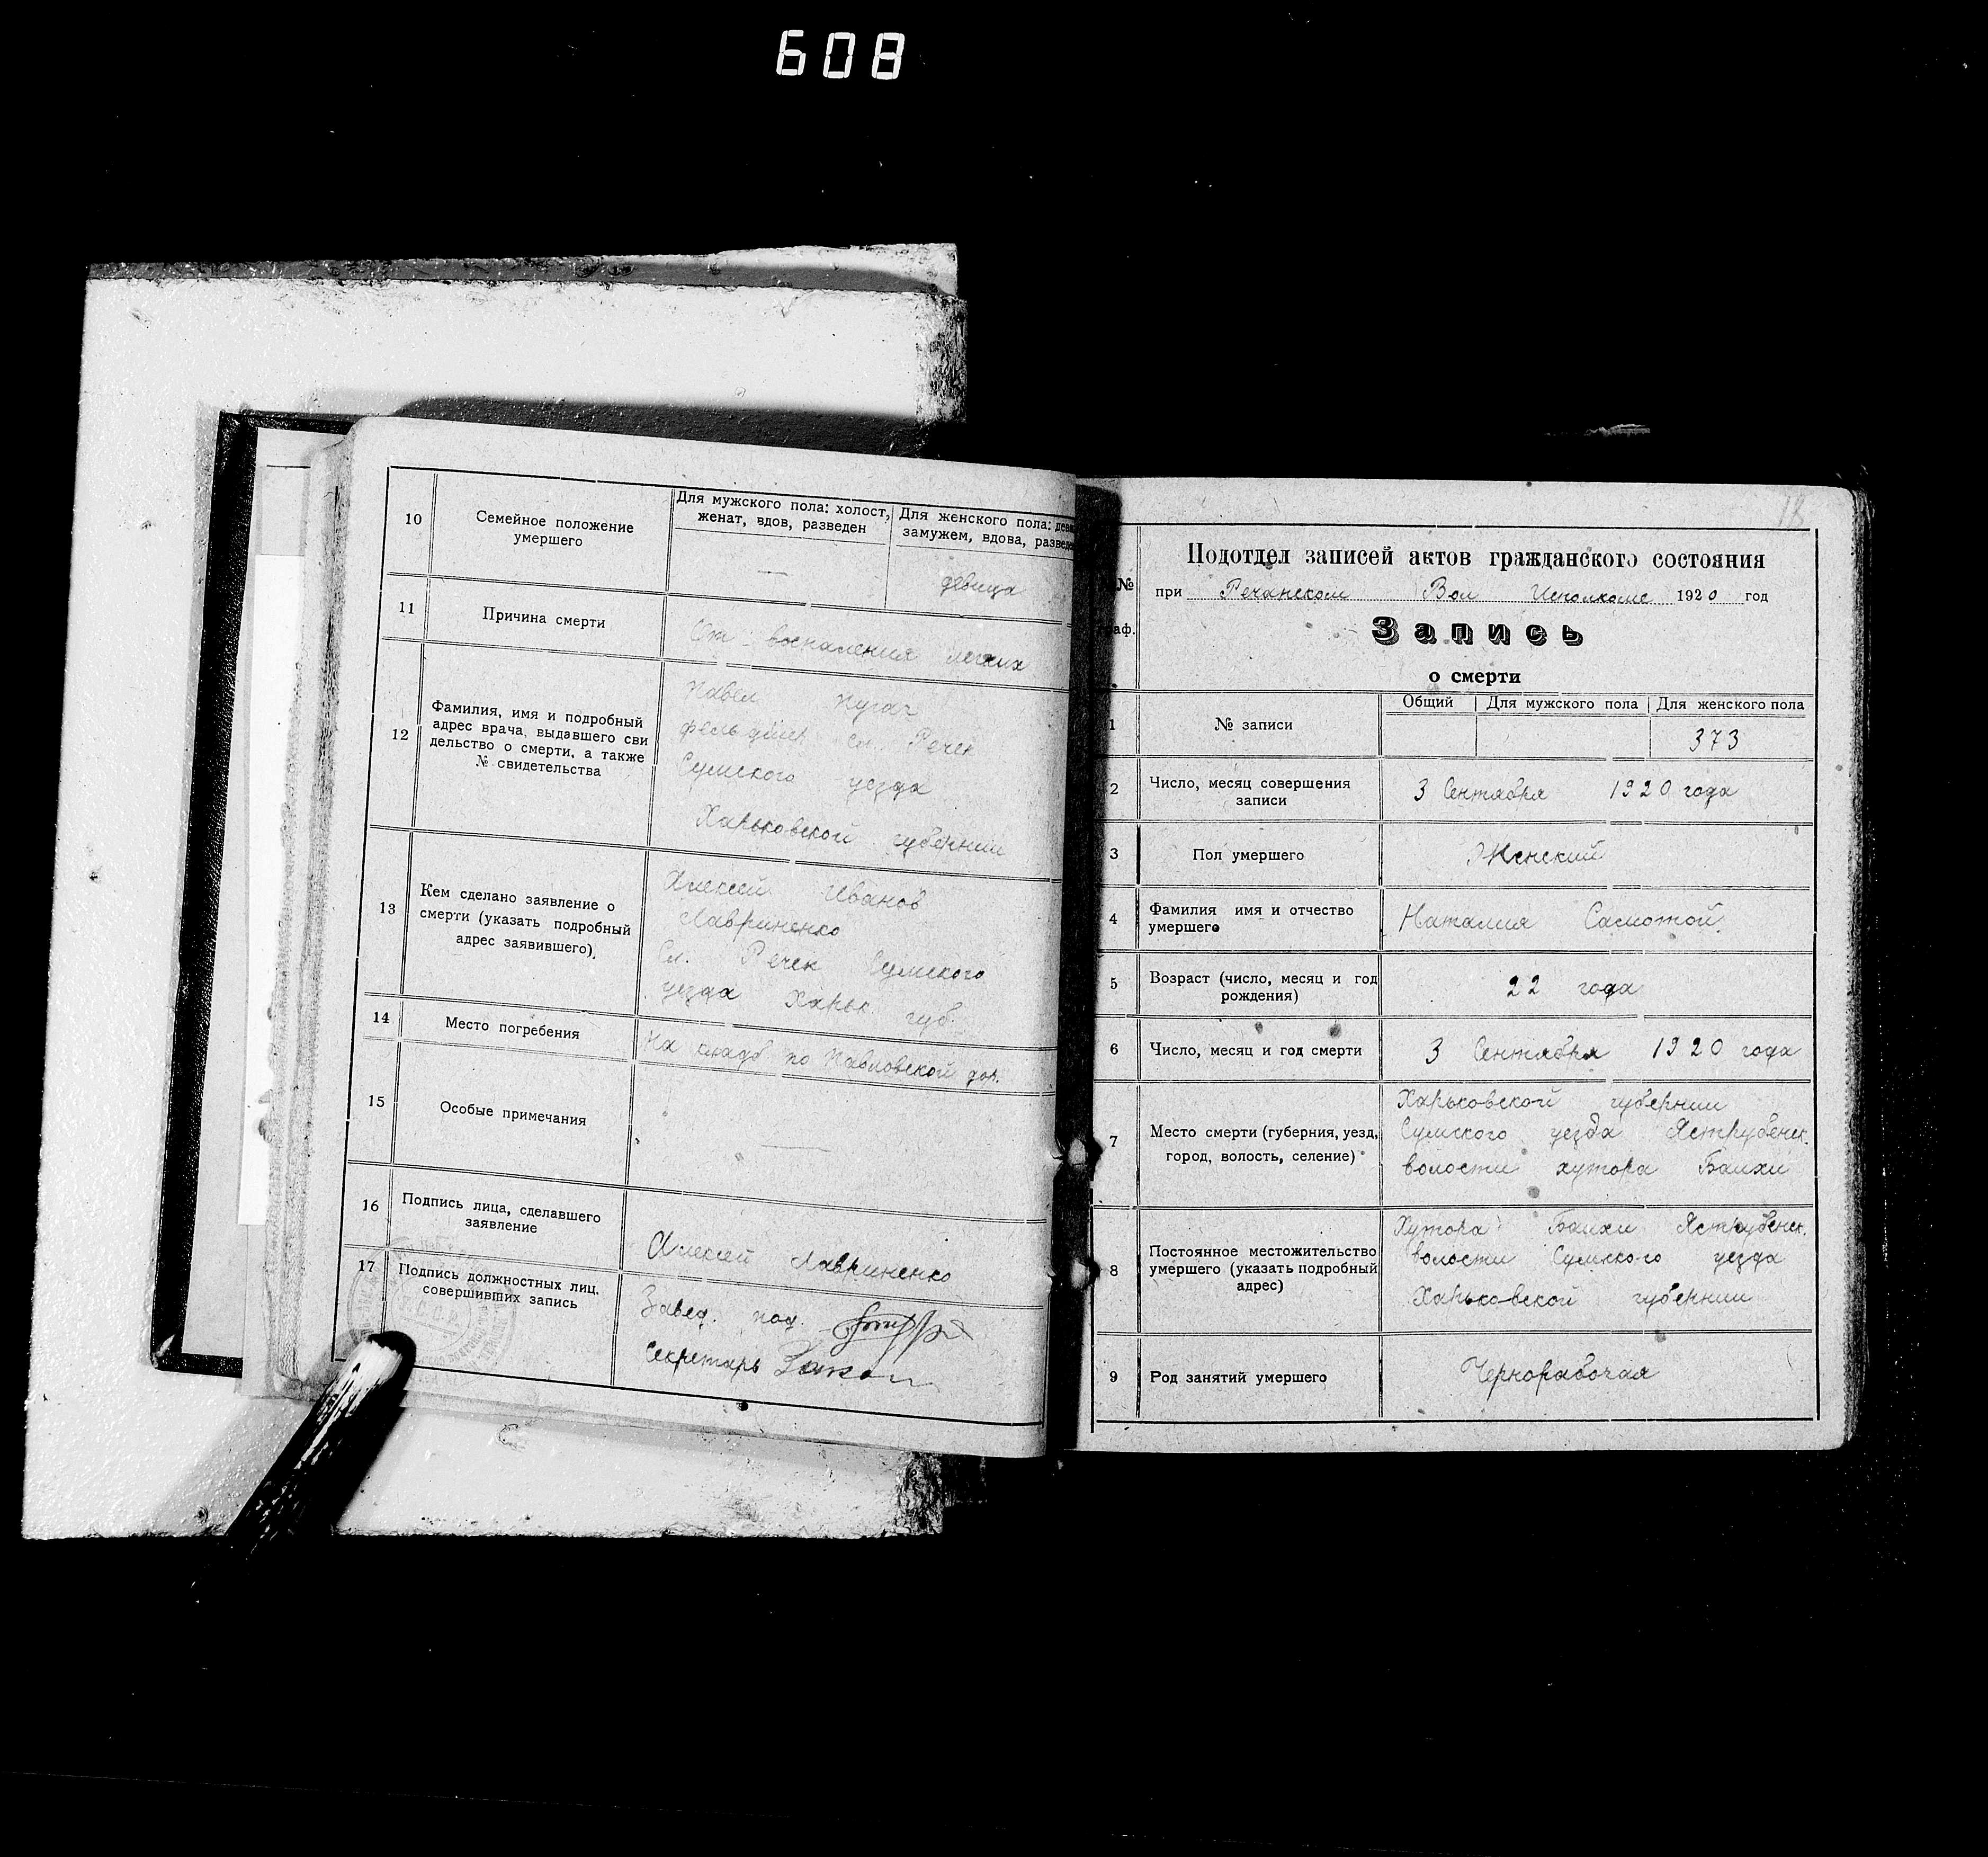 608
10
Семейное положение
умершего
Для мужского пола: холост,
женат, вдов, разведен
Для женского пола: деви
замужем, вдова, разведе
—
девица
11
Причина смерти
От воспаления легких
12
Фамилия, имя и подробный
адрес врача, выдавшего сви
дельство о смерти, а также
№ свидетельства
Павел Пугач
фельдшер сл. Речек
Сумского уезда
Харьковской губернии
13
Кем сделано заявление о
смерти (указать подробный
адрес заявившего).
Алексей Иванов
Лавриненко
Сл. Речек Сумского
уезда Харьк. губ.
14
Место погребения
На кладб по Павловской дор.
15
Особые примечания
—
16
Подпись лица, сделавшего
заявление
Алексей Лавриненко
17
Подпись должностных лиц,
совершивших запись
Завед. под.
Секретарь
№
аф.
Подотдел записей актов гражданского состояния
при Речанском Вол Исполкоме 1920 год
Запись
о смерти
1
№ записи
Общий
Для мужского пола
Для женского пола
373
2
Число, месяц совершения
записи
3 Сентября 1920 года
3
Пол умершего
Женский
4
Фамилия имя и отчество
умершего
Наталия Самотой.
5
Возраст (число, месяц и год
рождения)
22 года
6
Число, месяц и год смерти
3 Сентября 1920 года
7
Место смерти (губерния, уезд,
город, волость, селение)
Харьковской губернии
Сумского уезда Яструбенск.
волости хутора Баихи
8
Постоянное местожительство
умершего (указать подробный
адрес)
Хутора Баихи Яструбенск.
волости Сумского уезда
Харьковской губернии
9
Род занятий умершего
Чернорабочая